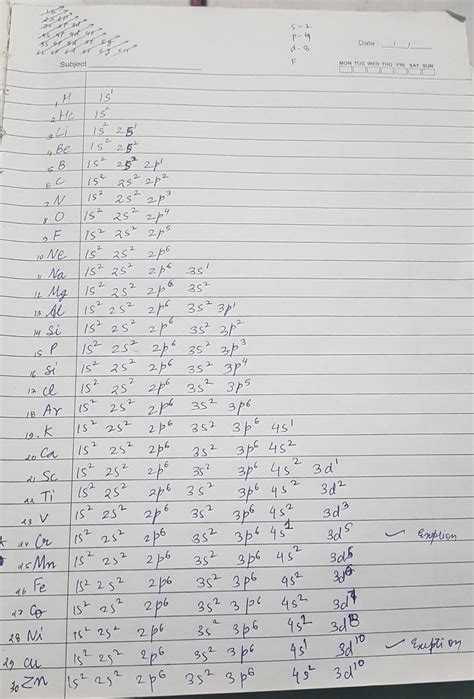 1s
2s 2p
3s 3p 3d
4s 4p 4d
s-2
p-4
d-8
F
Date : __/__/__
MON TUE WED THU FRI SAT SUN
Subject
1 H 1s¹
2 He 1s²
3 Li 1s² 2s¹
4 Be 1s² 2s²
5 B 1s² 2s² 2p¹
6 C 1s² 2s² 2p²
7 N 1s² 2s² 2p³
8 O 1s² 2s² 2p⁴
9 F 1s² 2s² 2p⁵
10 Ne 1s² 2s² 2p⁶
11 Na 1s² 2s² 2p⁶ 3s¹
12 Mg 1s² 2s² 2p⁶ 3s²
13 Al 1s² 2s² 2p⁶ 3s² 3p¹
14 Si 1s² 2s² 2p⁶ 3s² 3p²
15 P 1s² 2s² 2p⁶ 3s² 3p³
16 Si 1s² 2s² 2p⁶ 3s² 3p⁴
17 Cl 1s² 2s² 2p⁶ 3s² 3p⁵
18 Ar 1s² 2s² 2p⁶ 3s² 3p⁶
19. K 1s² 2s² 2p⁶ 3s² 3p⁶ 4s¹
20 Ca 1s² 2s² 2p⁶ 3s² 3p⁶ 4s²
21 Sc 1s² 2s² 2p⁶ 3s² 3p⁶ 4s² 3d¹
22 Ti 1s² 2s² 2p⁶ 3s² 3p⁶ 4s² 3d²
23 V 1s² 2s² 2p⁶ 3s² 3p⁶ 4s² 3d³
24 Cr 1s² 2s² 2p⁶ 3s² 3p⁶ 4s¹ 3d⁵ ✓ Exeption
25 Mn 1s² 2s² 2p⁶ 3s² 3p⁶ 4s² 3d⁵
26 Fe 1s² 2s² 2p⁶ 3s² 3p⁶ 4s² 3d⁶
27 Co 1s² 2s² 2p⁶ 3s² 3p⁶ 4s² 3d⁷
28 Ni 1s² 2s² 2p⁶ 3s² 3p⁶ 4s² 3d⁸
29 Cu 1s² 2s² 2p⁶ 3s² 3p⁶ 4s¹ 3d¹⁰ ✓ Exeption
30 Zn 1s² 2s² 2p⁶ 3s² 3p⁶ 4s² 3d¹⁰